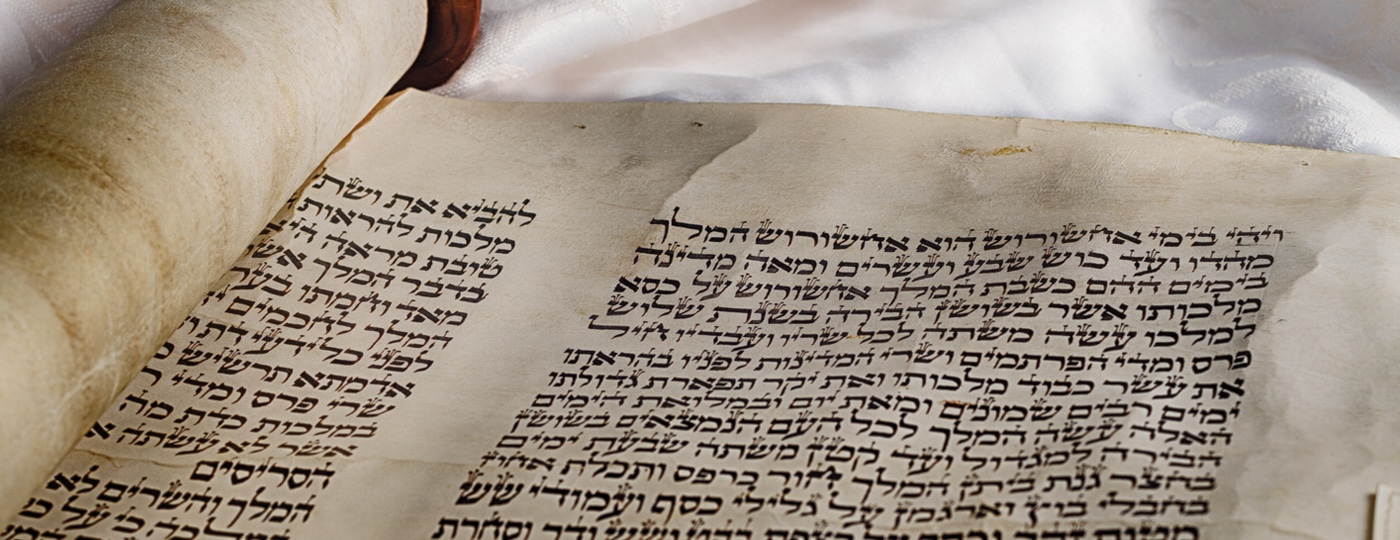 ויהי בימי אחשורוש הוא אחשורוש המלך
מהדו ועד כוש שבע ועשרים ומאה מדינה
בימים ההם כשבת המלך אחשורוש על כסא
מלכותו אשר בשושן הבירה בשנת שלוש
למלכו עשה משתה לכל שריו ועבדיו חיל
פרס ומדי הפרתמים ושרי המדינות לפניו בהראתו
את עשר כבוד מלכותו ואת יקר תפארת גדולתו
ימים רבים שמונים ומאת יום ובמלואת הימים
האלה עשה המלך לכל העם הנמצאים בשושן
הבירה למגדול ועד קטן משתה שבעת ימים
בחצר גנת ביתן המלך חור כרפס ותכלת אחוז
בחבלי בוץ וארגמן על גלילי כסף ועמודי שש
מטות זהב וכסף על רצפת בהט ושש ודר וסחרת
להביא את ושת
מלכות להראות
טובת מראה היא
בדבר המלך אשר
מאד וחמתו בער
המלך לחכמים
לפני כל ידעי דת
אדמתא תרשיש
שרי פרס ומדי
במלכות כדת מה
אשר לא עשתה
הסריסים
המלך והשרים לא
כי על